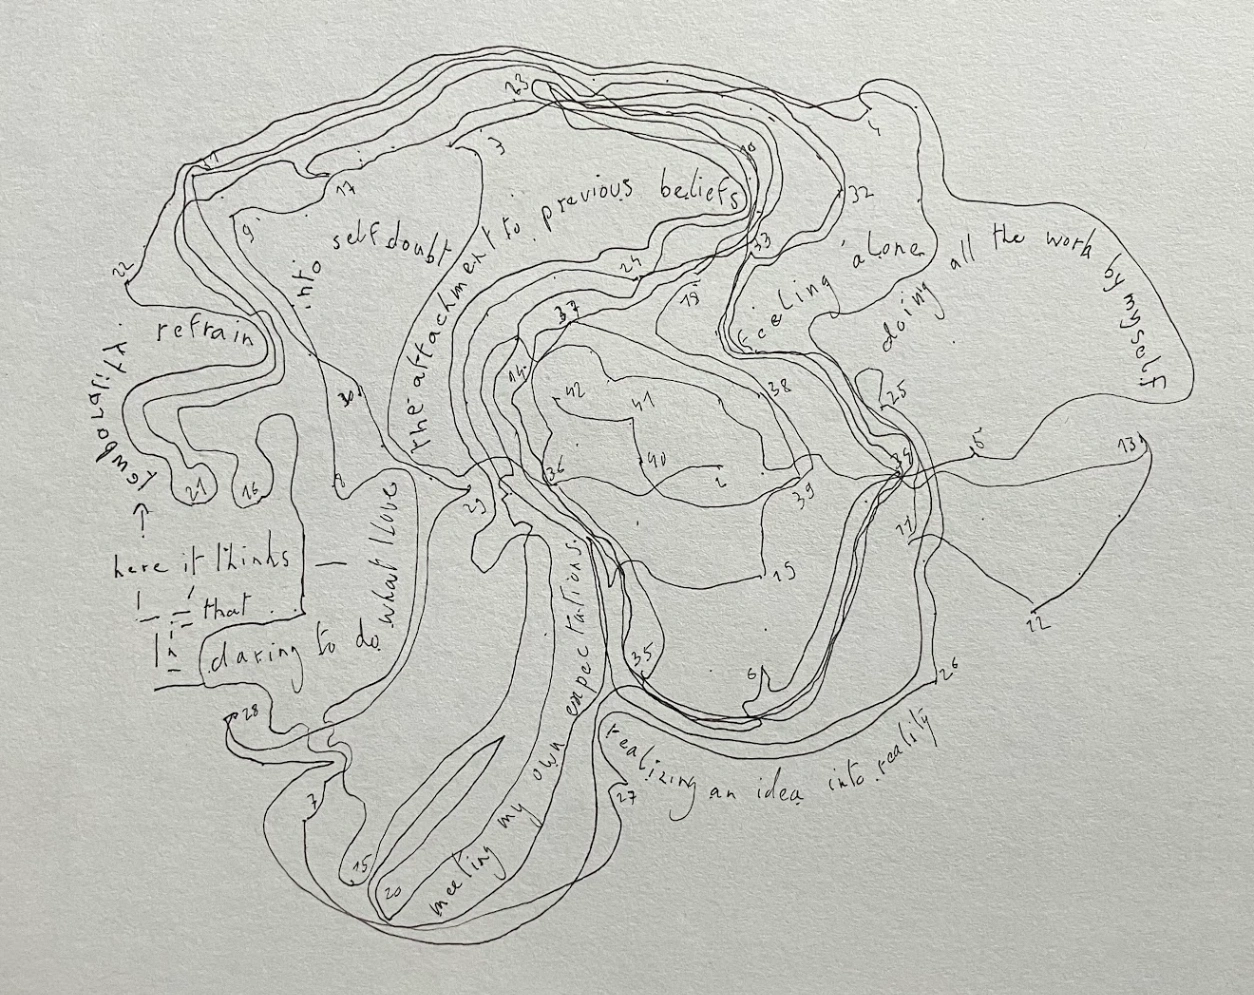 23
3
4
10
17
32
9
the attachment to previous beliefs
self doubt
into
33
feeling alone
doing all the work by myself
24
22
18
37
refrain
14
38
42
41
25
30
8
36
40
1
39
34
5
13
21
16
29
here it thinks
that
daring to do what I love
11
15
12
35
6
26
28
meeting my own expectations.
realizing an idea into reality
27
7
15
20